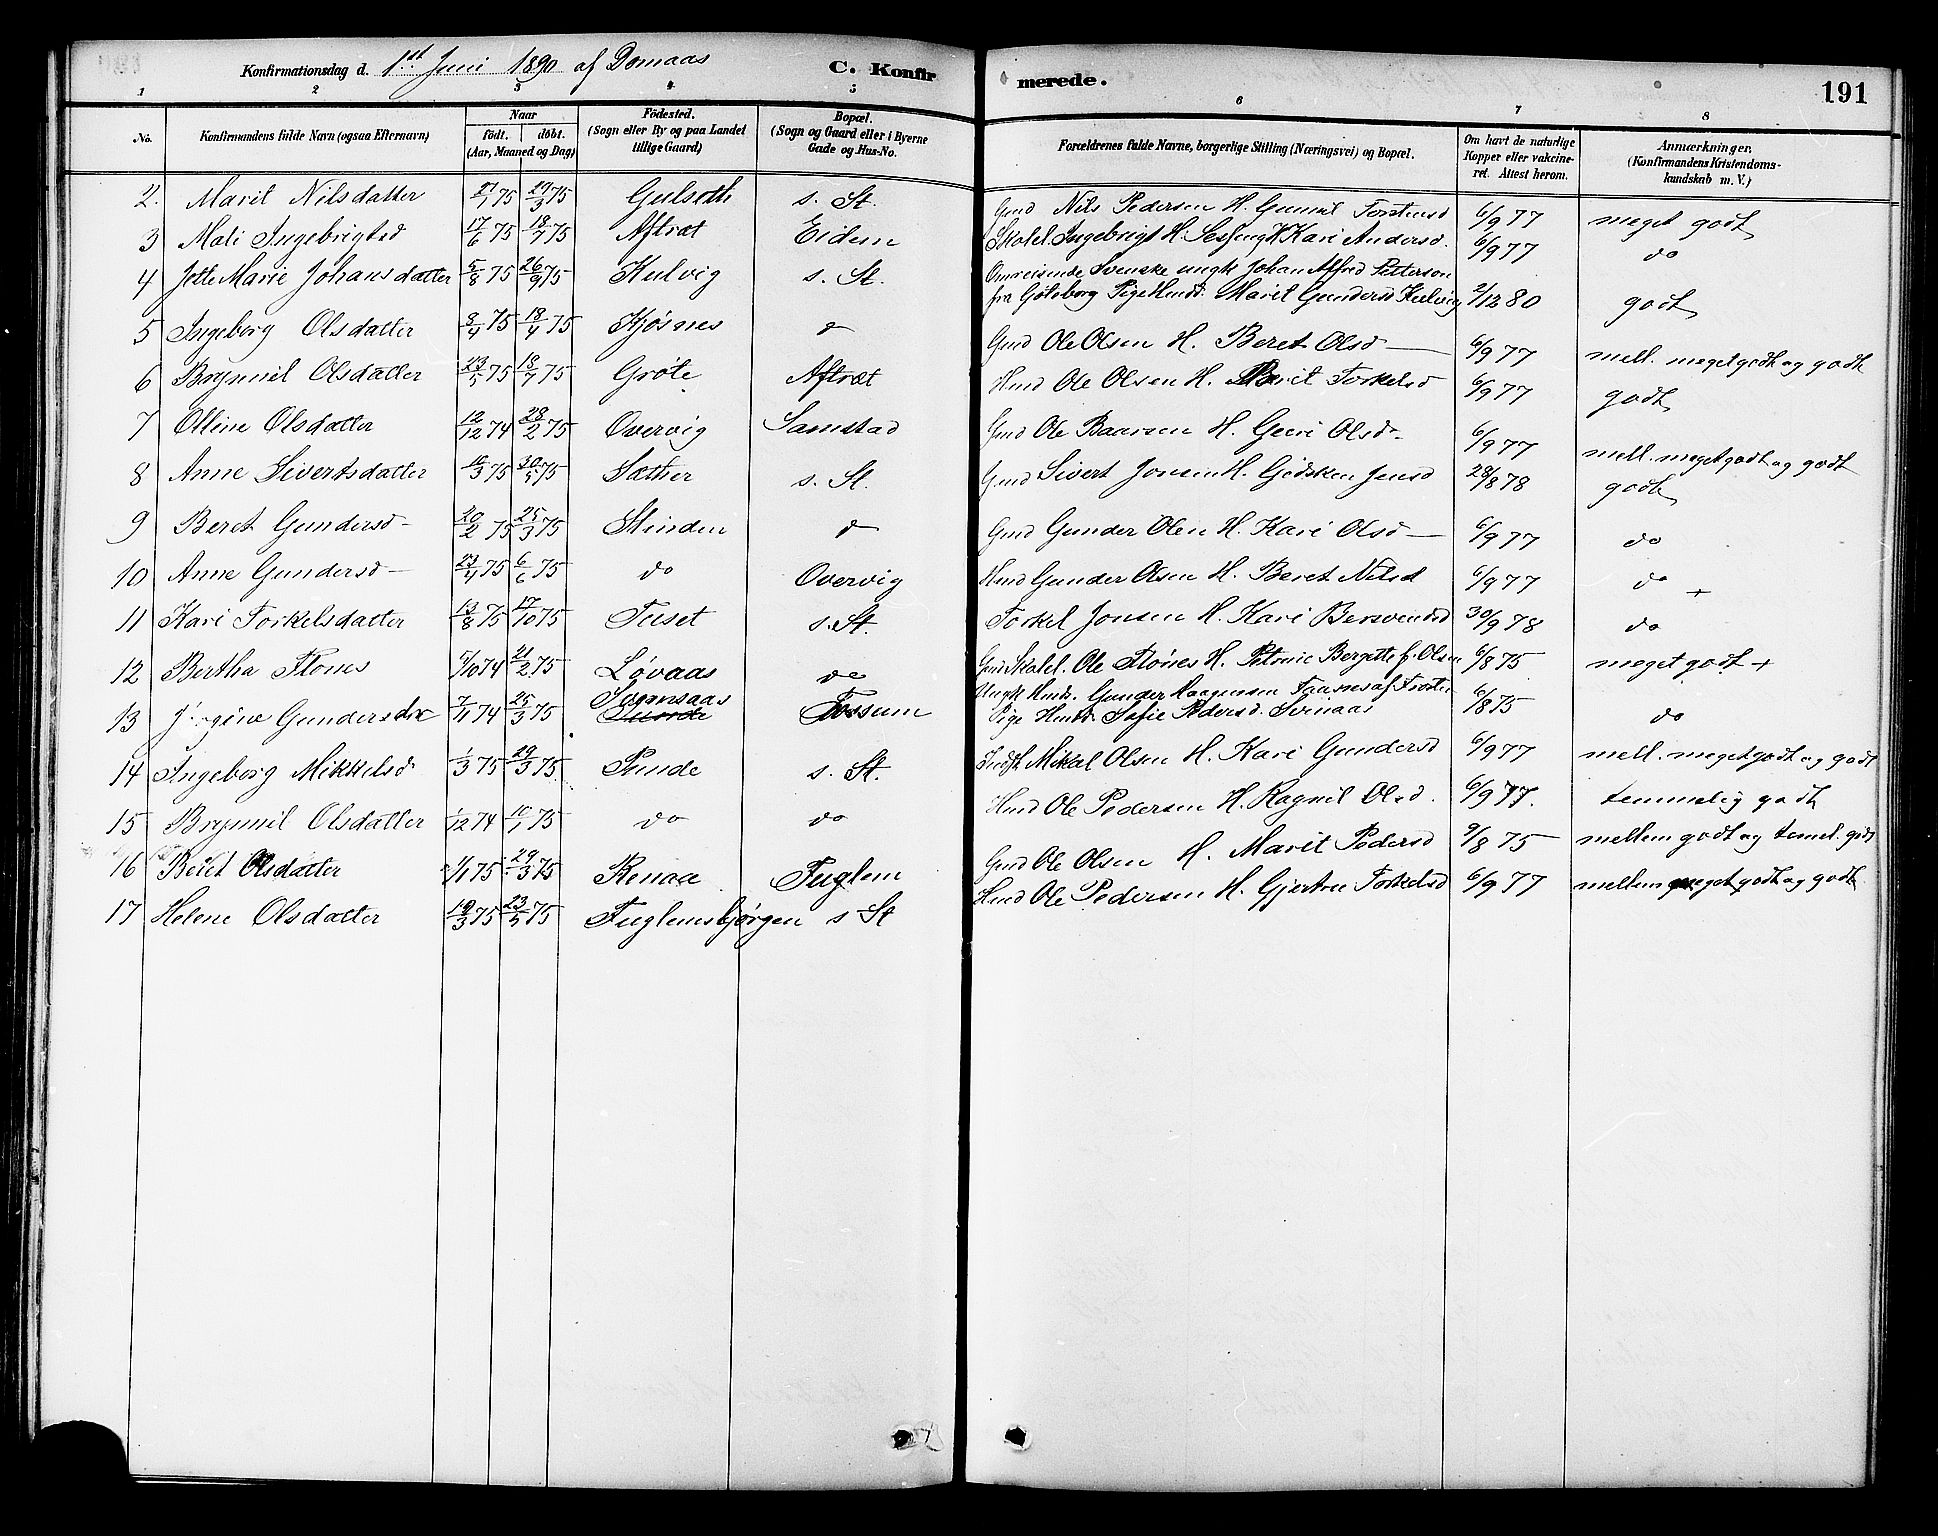 Konfirmationsdag d. 1st Juni 1890 af Domaas C. Konfirmerede. 191
1 2 3 4 5 6 7 8
No. Konfirmandens fulde Navn (ogsaa Efternavn) Naar födt. döbt. (Aar, Maaned og Dag) Födested. (Sogn eller By og paa Landet tillige Gaard) Bopæl. (Sogn og Gaard eller i Byerne Gade og Hus-No. Forældrenes fulde Navne, borgerlige Stilling (Næringsvei) og Bopæl. Om havt de naturlige Kopper eller vakcineret. Attest herom. Anmærkninger, (Konfirmandens Kristendomskundskab m. V.)
2. Marit Nilsdatter 27/1 75 29/3 75 Gulseth s. St. Gmd Nils Pedersen H. Gunnil Torstensd 6/9 77 meget godt
3 Mali Ingebrigtsd 17/6 75 18/7 75 Aftræt Eidem Skolel. Ingebrigt H. Kari Andersd. 6/9 77 do
4 Jette Marie Johansdatter 5/8 75 26/9 75 Kulvig s. St. Omreisende Svenske ungk Johan Alfred Petterson
fra Gøteborg Pige Marit Gundersd Kulvig 2/12 80 godt
5 Ingeborg Olsdatter 3/4 75 18/4 75 Kjøsnes d Gmd Ole Olsen H. Beret Olsd — 6/9 77 mell. meget godt og godt
6 Brynnil Olsdatter 23/5 75 18/7 75 Grøte Aftræt Hmd Ole Olsen H. Marit Torkelsd 6/9 77 godt
7 Olline Olsdatter 12/12 74 28/2 75 Overvig Samstad Gmd Ole Baarsen H. Guri Olsd 6/9 77 mell. meget godt og godt
8 Anne Sivertsdatter 16/3 75 30/5 75 Sæther s. St. Gmd Sivert Jonsen H. Gjdsken Jensd 28/8 78 godt
9 Beret Gundersd — 20/2 75 25/3 75 Stinden d Gmd Gunder Olen H. Kari Olsd — 6/9 77 do
10 Anne Gundersd — 23/4 75 6/6 75 do Overvig Hmd Gunder Olsen H. Beret Nilsd 6/9 77 do +
11 Kari Torkelsdatter 13/8 75 17/10 75 Tuset s. St. Torkel Jonsen H. Kari Bersvendsd 30/9 78 do
12 Bertha Flønes 5/10 74 21/2 75 Løvaas do Gmd Skolel. Ole Flønes H. Petronie Bergette f. Olsen 6/8 75 meget godt +
13 Gundersdtr 7/11 74 25/3 75 Fossum Ungk Hmds. Gunder Haagensen af Frosten
Pige Sofie Pedersd. 6/8 75 do
14 Ingeborg Mikkelsd 1/3 75 29/3 75 Runde s. St. Indst Mikal Olsen H. Kari Gundersd 6/9 77 mell. meget godt og godt
15 Brynnil Olsdatter 1/12 74 10/1 75 do do Hmd Ole Pedersen H. Ragnil Olsd. 6/9 77. temmelig godt
16 Beret Olsdatter 2/1 75 29/3 75 Renaa Fuglem Gmd Ole Olsen H. Marit Pedersd 9/8 75 mellem godt og temel. godt
17 Helene Olsdatter 19/3 75 23/5 75 Fuglemsbjørgen s St Hmd Ole Pedersen H. Gjertrue Torkelsd 6/9 77 mellem meget godt og godt